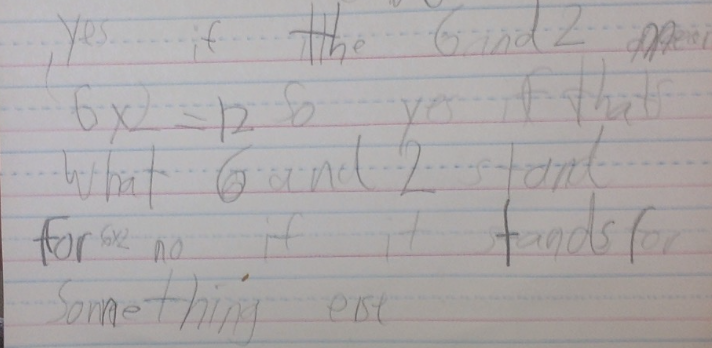 yes if the 6 and 2
6x2 = 12 So yes if that's
What 6 and 2 stand
for 6x2 no if it stands for
Something else